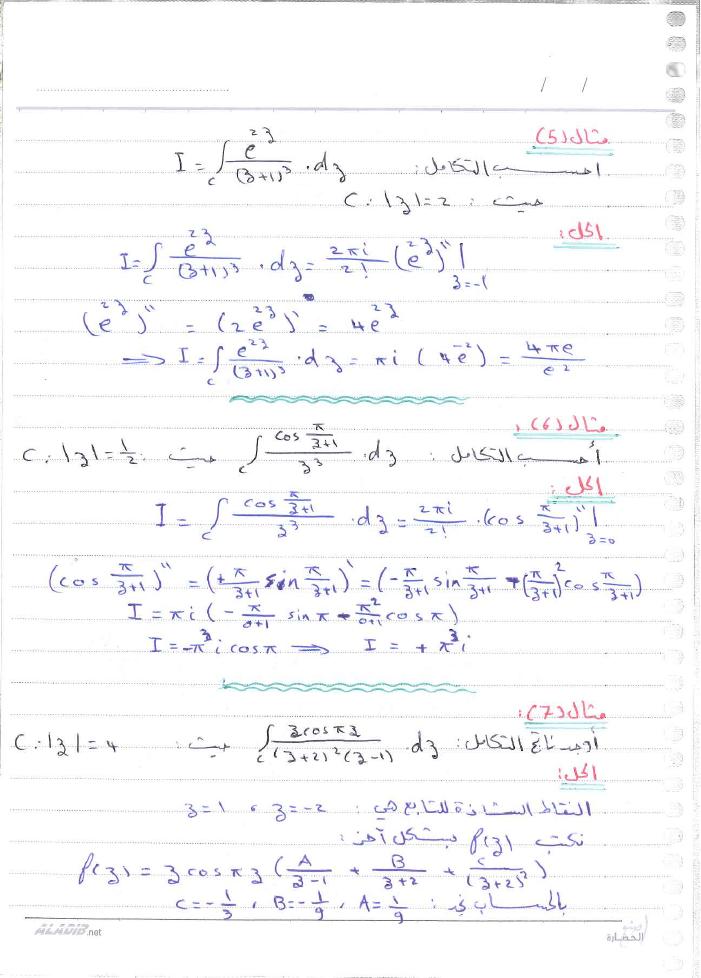 / /
مثال (5):
احسب التكامل: I = ∫_C e^{2z}/(z+1)^3 · dz
حيث: C: |z| = 2
الحل:
I = ∫_C e^{2z}/(z+1)^3 · dz = 2πi/2! (e^{2z})''|_{z=-1}
(e^{2z})'' = (2e^{2z})' = 4e^{2z}
⟹ I = ∫_C e^{2z}/(z+1)^3 · dz = πi (4e^{-2}) = 4πe/e^2
مثال (6):
أحسب التكامل: ∫_C cos π/(z+1) / z^3 · dz حيث: C: |z| = 1/2
الحل:
I = ∫_C cos π/(z+1) / z^3 · dz = 2πi/2! · (cos π/(z+1))''|_{z=0}
(cos π/(z+1))'' = (+π/(z+1) sin π/(z+1))' = (-π/(z+1) sin π/(z+1) - (π/(z+1))^2 cos π/(z+1))
I = πi (-π/(0+1) sin π - π^2/(0+1) cos π)
I = -π^3 i cos π ⟹ I = + π^3 i
مثال (7):
أوجد ناتج التكامل: ∫_C z cos πz / (z+2)^2 (z-1) · dz حيث: C: |z| = 4
الحل:
النقاط الشاذة للتابع هي: z = -2 ، z = 1
نكتب f(z) بشكل آخر:
f(z) = z cos πz (A/(z-1) + B/(z+2) + c/(z+2)^2)
بالحساب نجد: A = 1/9 ، B = -1/9 ، c = -1/3
ALADIB.net
الحضارة